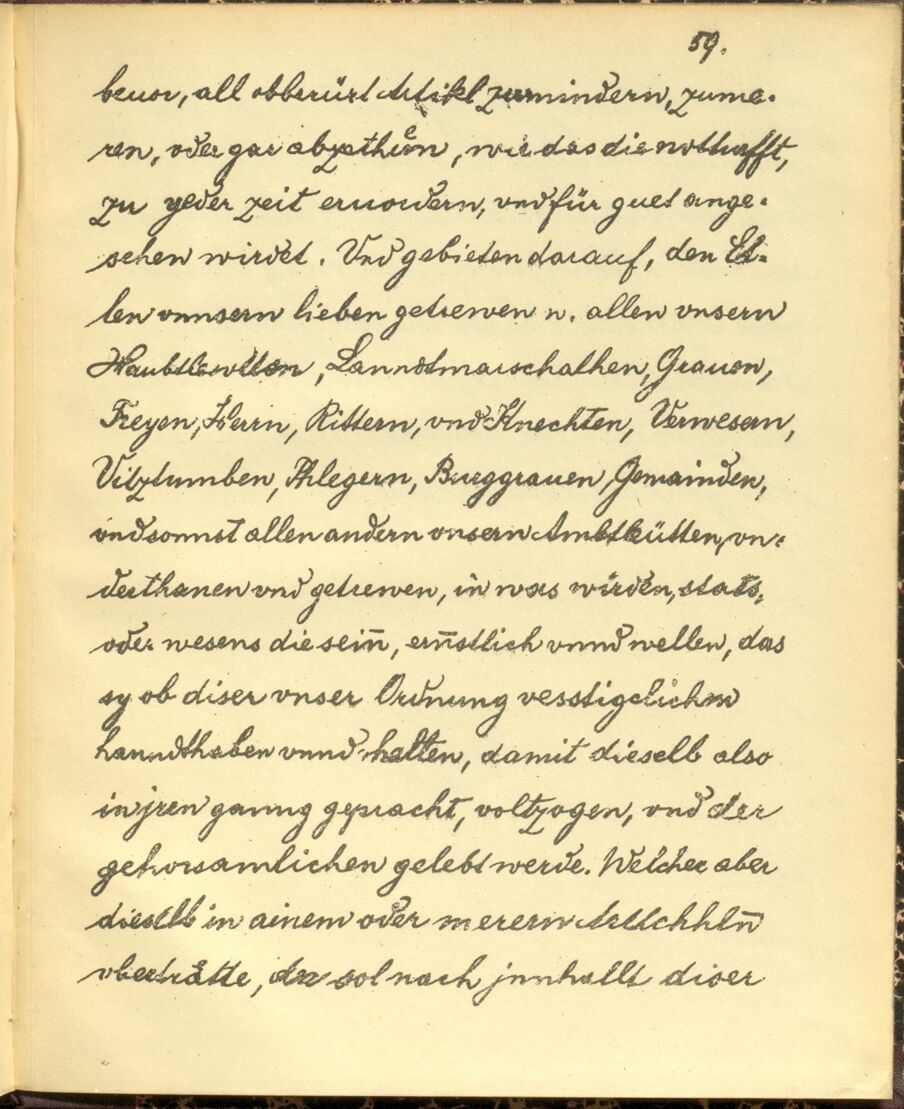 59.
beuor, all obberürt Artikl zumindern, zume-
ren, oder gar abzethuen, wie das die notturfft,
zu yeder zeit eruordern, vnd für guet ange-
sehen wirdet. Vnd gebieten darauf, den Et-
len vnnsern lieben getrewen n. allen vnsern
Haubtlewtten, Lanndtmarschalhen, Grauen,
Freyen, Herrn, Rittern, vnd Knechten, Verwesern,
Vitztumben, Phlegern, Burggrauen, Gemainden,
vnd sonnst allen andern vnsern Ambtleütten, vn-
derthanen vnd getrewen, in was wirden, stats,
oder wesens die sein̄, ern̄stlich vnnd wellen, das
sy ob diser vnser Ordnung vesstigelichen
hanndthaben vnnd halten, damit dieselb also
in jren ganng gepracht, voltzogen, vnd der
gehorsamlichen gelebt werde. Welcher aber
dieselb in ainem oder merern Artickhln̄
vberträtte, der sol nach jnnhallt diser